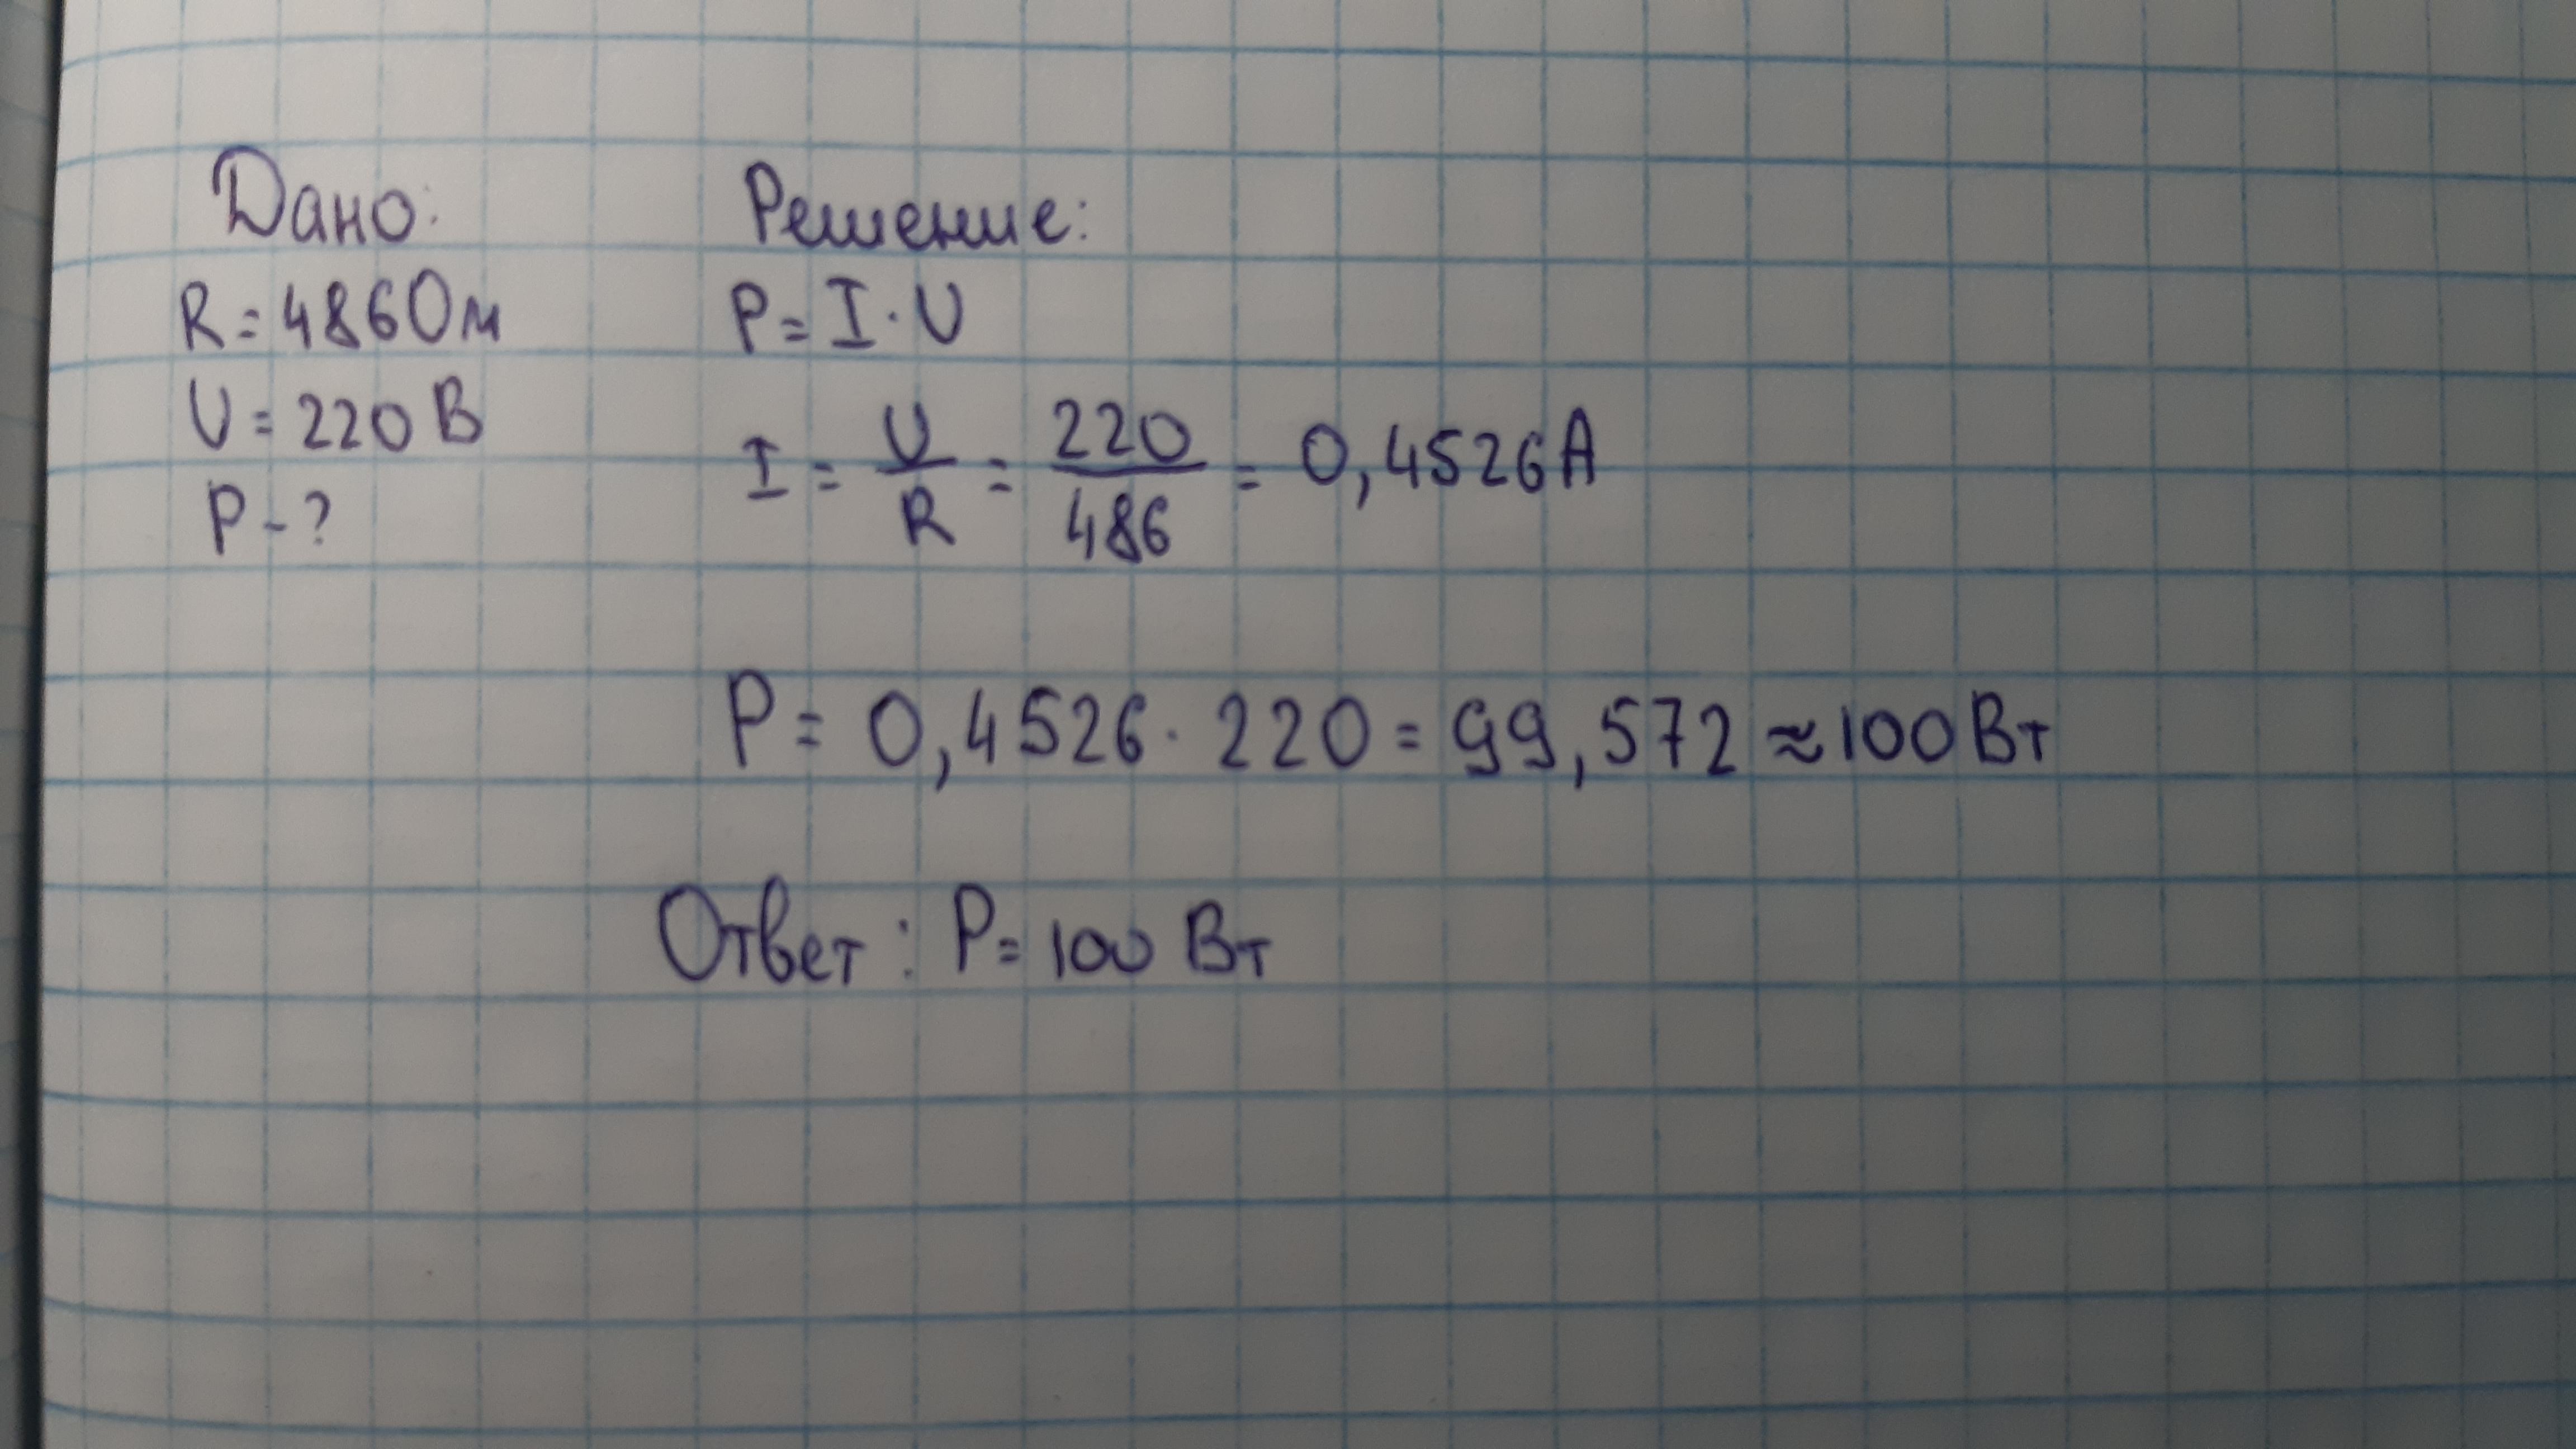 Дано:
R = 486 Ом
U = 220 В
P - ?
Решение:
P = I · U
I = U/R = 220/486 = 0,4526 А
P = 0,4526 · 220 = 99,572 ≈ 100 Вт
Ответ: P = 100 Вт